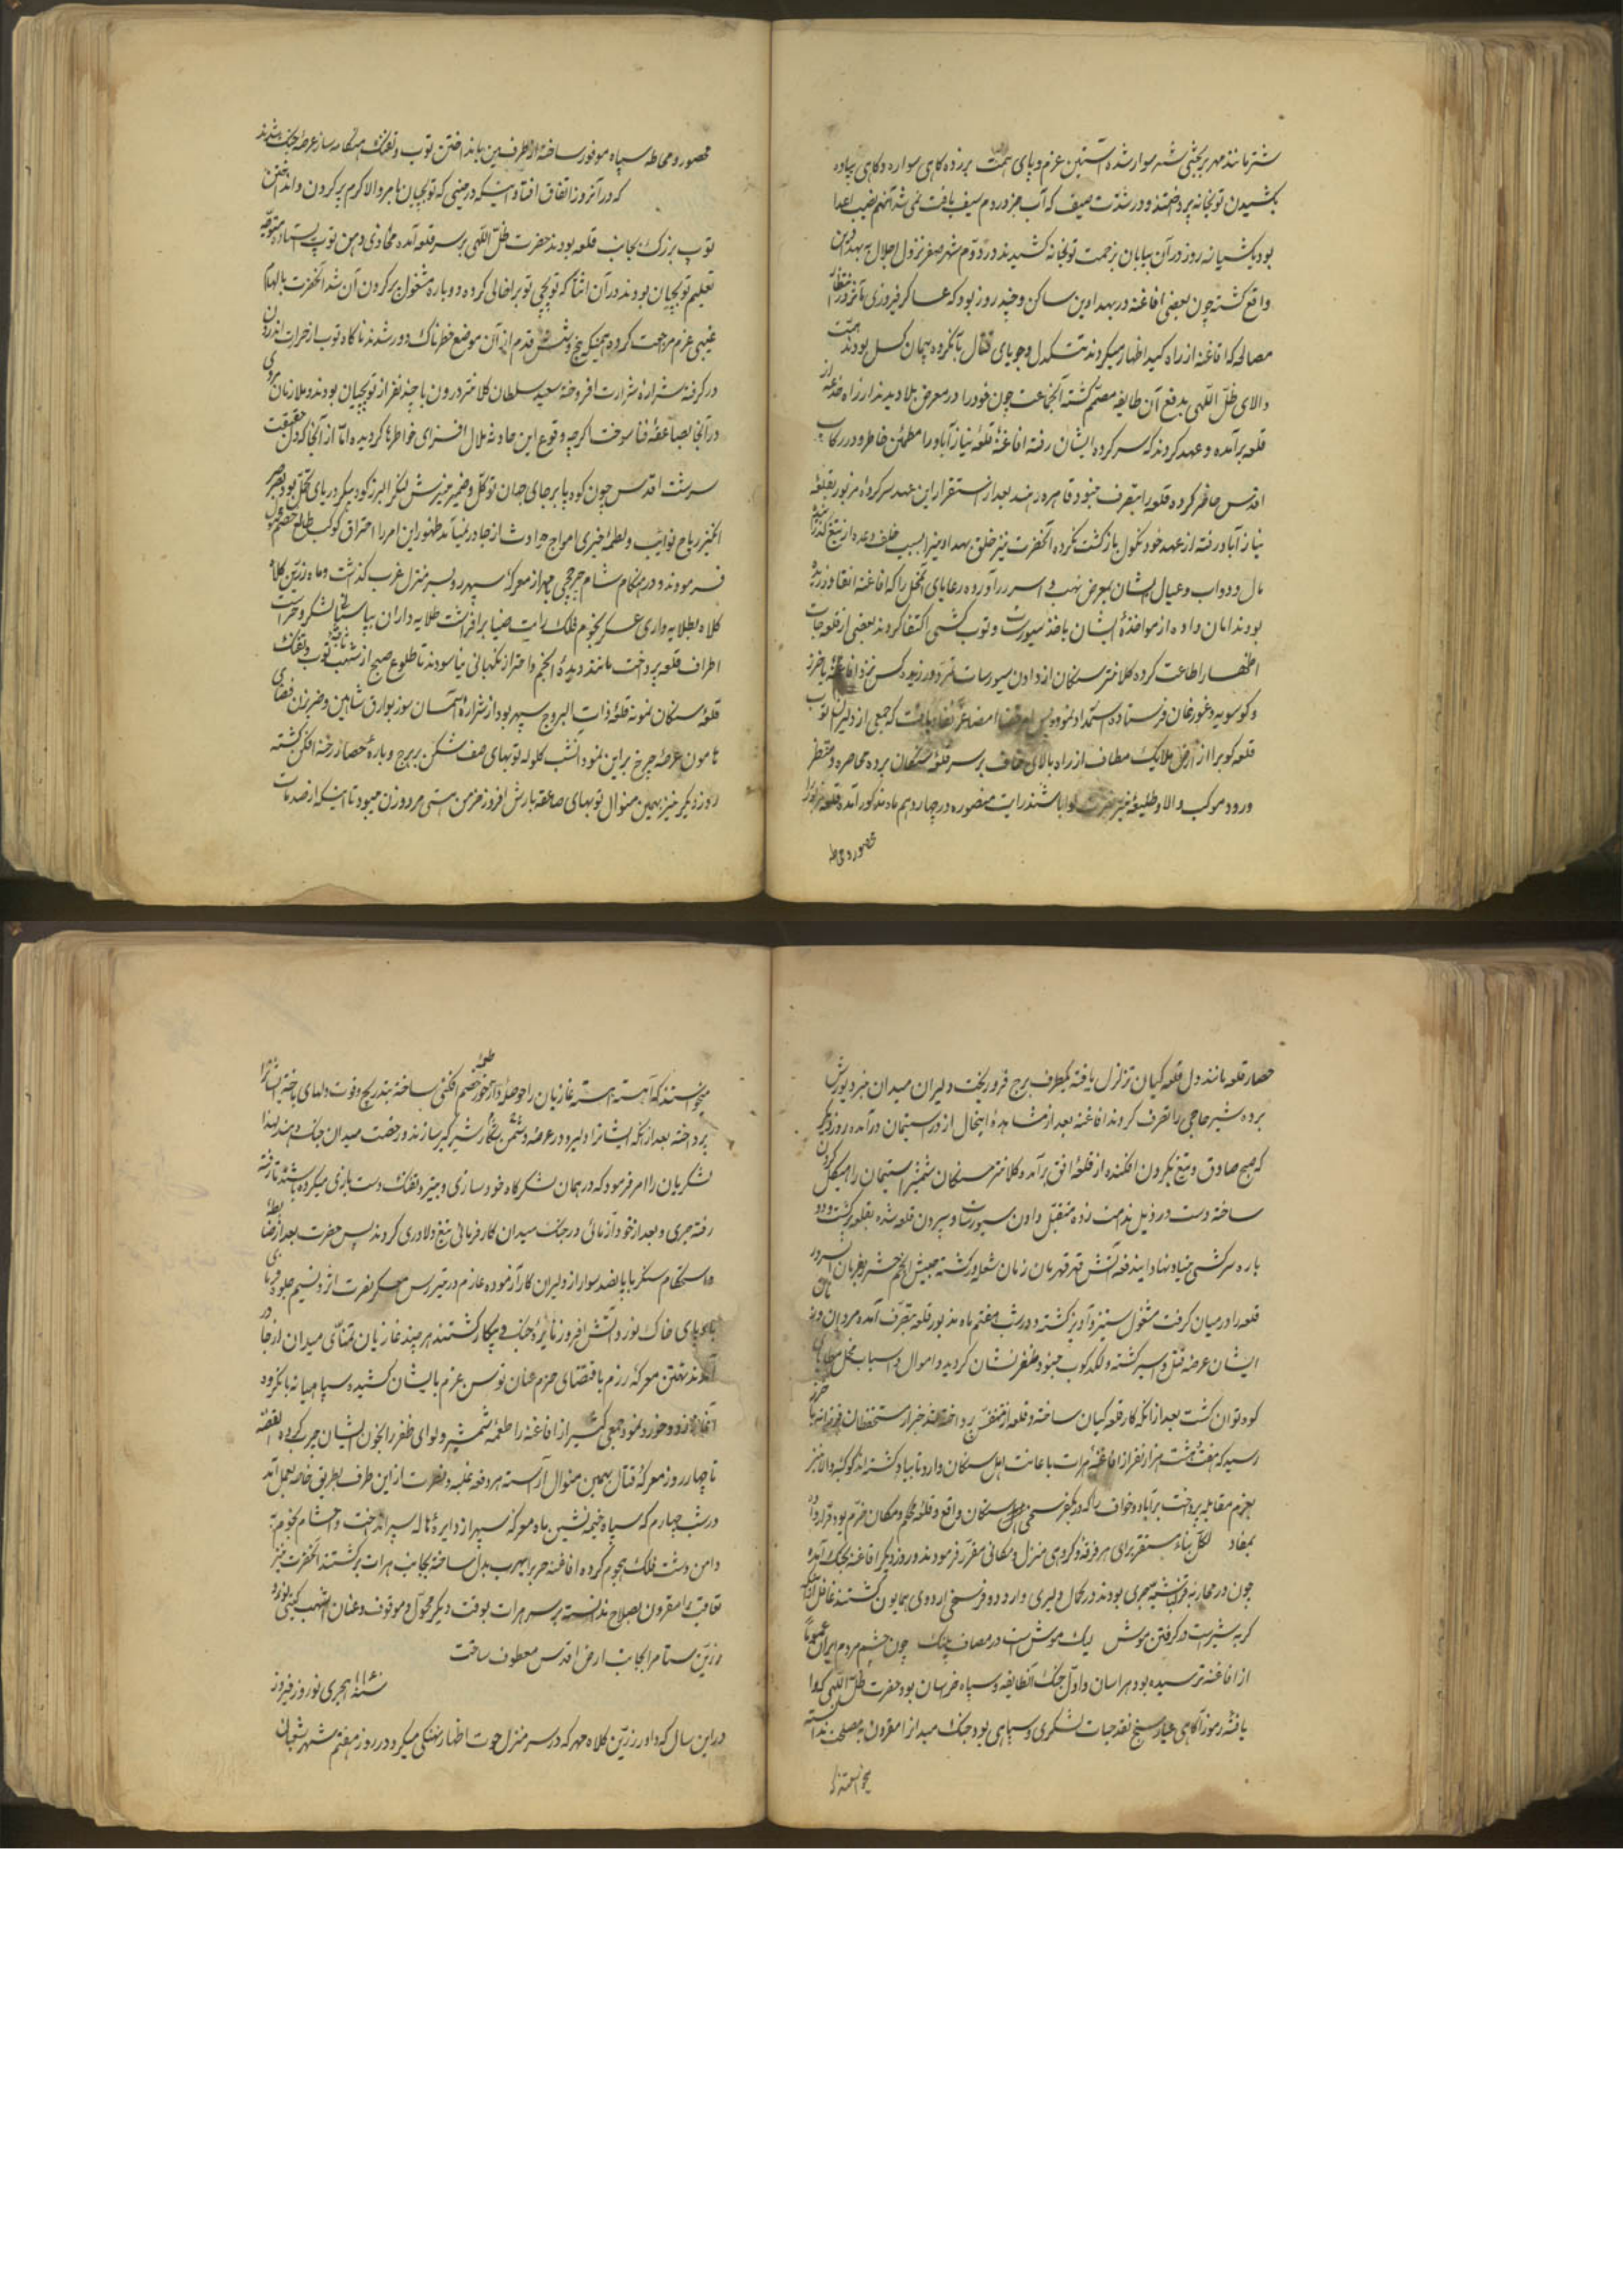 شتر مانند مهر بر بختی سپهر سوار شده آستین عزم و پای همت برزده گاهی سواره و گاهی پیاده
بکشیدن توپخانه پرداختند و در شدت صیف که آب جز در دم سیف یافت نمی شد آنهم نصیب اعدا
بود یکشبانه روز در آن بیابان بزحمت توپخانه کشیدند در دوم شهر صفر نزول اجلال به بهدادین
واقع گشته چون بعضی افاغنه در بهدادین ساکن و چند روز بود که عساکر فیروزی مآثر در انتظار
مصالحه که افاغنه از راه کید اظهار میکردند تنگدل و جویای قتال با نکرده پیمان گسل بودند همت
والای ظل اللهی بدفع آن طایفه مصمم گشته آنجماعت چون خود را در معرض بلا دیدند از راه خدعه از
قلعه برآمده و عهد کردند که سرکرده ایشان رفته افاغنهٔ قلعهٔ نیازآباد را مطمئن خاطر و در رکاب
اقدس حاضر کرده قلعه را بتصرف جنود قاهره دهند بعد از استقرار این عهد سرکردهٔ مزبور بقلعهٔ
نیازآباد رفته از عهد خود نکول بازگشت نکرده آنحضرت نیز خلق بهدادین را بسبب خلف وعده از تیغ گذرانیده
مال و دواب و عیال ایشان بمعرض نهب و اسر درآورده رعایای آنمحل را که افاغنه انقاد ورزیده
بودند امان داده از مواخذهٔ ایشان باخذ سیورسات و توپ کشی اکتفا کردند بعضی از قلعه جات
اظهار اطاعت کرده کلانتر سنگان از دادن سیورسات تمرد ورزیده کس نزد افاغنهٔ باخرز
و کوسویه و غوریان فرستاده استمداد نمود پس امر قضا امضا عز نفاذ یافت که جمعی از دلیران توپ
قلعه کوب را از ارض ملایک مطاف از راه بالای خواف بر سر قلعهٔ سنگان برده محاصره و منتظر
ورود موکب والا و طلیعهٔ نیر نصرت لوا باشند رایت منصوره در چهاردهم ماه مذکور آمده قلعه مزبور را
محصور و محاطه
محصور و محاطه سپاه موفور ساخته از طرفین بانداختن توپ و تفنگ هنگامه ساز عرصهٔ جنگ شدند
که در آنروز اتفاق افتاد اینکه در حینی که توپچیان بامر والا گرم پر کردن و انداختن
توپ بزرگ بجانب قلعه بودند حضرت ظل اللهی بر سر قلعه آمده محاذی دهن توپ ایستاده متوجه
تعلیم توپچیان بودند در آن اثنا که توپچی توپ را خالی کرده دوباره مشغول پر کردن آن شد آنحضرت بالهام
غیبی عزم مراجعت کرده همینکه پنج و شش قدم از آن موضع خطرناک دور شدند ناگاه توپ از حرارت اندرون
در گرفته شرارهٔ شرارت افروخته سعید سلطان کلانتر درون با چند نفر از توپچیان بودند و ملازمان
در آنجا بصاعقهٔ فنا سوخت اگرچه وقوع این حادثه ملال افزای خواطرها گردیده اما از آنجا که دل حقیقت
سرشت اقدس چون کوه پا برجای جهان توکل و ضمیر منیرش لنگر البرز کوه پیکر دریای تحمل بود بصر
انگیز ریاح نوایب و لطمهٔ خیزی امواج حوادث از جا در نیامد ظهور این امر را احتراق کوکب طالع خصم قرار
فرمودند و در هنگام شام چرخچی مهر از معرکهٔ سپهر رو بسر منزل غرب گذشت و ماه زرین کلاه
کلاه بطلایه داری عسکر نجوم فلک رایت ضیا برافراشت طلایه داران بپاسبانی لشکر و حراست
اطراف قلعه پرداخت مانند دیدهٔ انجم و اختر از نگهبانی نیاسودند تا طلوع صبح از شهاب ثاقبهٔ توپ و تفنگ
قلعهٔ سنگان نمونهٔ قلعهٔ ذات البروج سپهر بود از شرارهٔ آسمان سوز بوارق شاهین و ضربزن فضای
هامون عرصهٔ چرخ برین نمود آنشب گلوله توپهای صف شکن بر برج و بارهٔ حصار رخنه افکن گشته
روز دیگر نیز بهمین منوال توپهای صاعقه بارش افروز خرمن هستی مرد و زن میبود تا اینکه از صدمات
حصار قلعه مانند دل قلعه گیان تزلزل یافته یکطرف برج فرو ریخت دلیران میدان نبرد یورش
برده شیر حاجی را تصرف کردند افاغنه بعد از مشاهدهٔ اینحال از در استیمان درآمده روز دیگر
که صبح صادق و تیغ بگردن افکنده از قلعهٔ افق برآمد کلانتر سنگان شمشیر استیمان را هیکل گردن
ساخته دست در ذیل ندامت زده متقبل دادن سیورسات و سپردن قلعه شده بقلعه برگشت و دو
باره سرکشی بنیاد نهاد ایندفعه آتش قهر قهرمان زمان شعله ور گشته جیش انجم حشر بفرمان آن سرور
قلعه را در میان گرفت مشغول ستیز و آویز گشته و در شب هفتم ماه مذبور قلعه بتصرف آمده مردان و زنان
ایشان عرضهٔ قتل و اسر گشته لگدکوب جنود ظفرنشان گردید و اموال و اسباب محل
کوه توان گشت بعد از آنکه کار قلعه گیان ساخته و قلعه از متنفس پرداخته شد خبر از مستحفظان
رسید که هفت هشت هزار نفر از افاغنهٔ هرات باعانت اهل سنگان وارد نایباد گشته اند کوکبهٔ والا نیز
بعزم مقابله پرداخت برآباد و خواف را که در یکفرسخی سنگان واقع و قلعهٔ محکم و مکان خرم بود قرار داد
بمفاد لکل نباء مستقر برای هر فرقه و گروهی منزل و مکانی مقرر فرمودند و روز دیگر افاغنه بجنگ آمده
چون در محاربه قزلباشیه جری بودند در کمال دلیری وارد دو فرسخی اردوی همایون گشتند غافل از آنکه
گربه شیر است در گرفتن موش لیک موش است در مصاف پلنگ چون چشم مردم ایران عموماً
از افاغنه ترسیده بود هراسان و اول جنگ آنطایفه و سپاه خراسان بود حضرت ظل اللهی که وا
یافتهٔ رموز آگاهی عیار سنج نقد حیات لشکری و سپاهی بود جنگ میدان را مقرون بمصلحت ندانسته
میخواستند که
میخواستند که آهسته آهسته غازیان را حوصله خور طعمهٔ خصم افکنی ساخته بتدریج و قوت دلهای باخته ایشان را
پرداخته بعد از آنکه ایشانرا دلیر و در عرصهٔ دشمن شکار شیرگیر سازند رخصت میدان جنگ دهند لهذا
لشکریان را امر فرمود که در همان لشکرگاه خود سازی و بتیر و تفنگ دست بازی میکرده باشند تا رفته
رفته جری و بعد از خود آزمائی در جنگ میدان کارفرمائی تیغ دلاوری کردند پس حضرت بعد از ضابطه
و استحکام سنگر با پانصد سوار از دلیران کارآزموده عازم در تیررس معسکر نصرت اثر و نسیم جلوه
پای خاک نورد آتش افروز نایرهٔ جنگ و پیکار گشتند هر چند غازیان بتمنای میدان از جا در
آمدند تهمتن معرکهٔ رزم باقتضای حزم عنان توسن عزم بایشان کشیده سپاهیانه با نکرده
آغاز زد و خورد نموده جمعی کثیر از افاغنه را طعمه شمشیر و لوای ظفر را بخون ایشان چرب کرده القصه
تا چهار روز معرکهٔ قتال بهمین منوال آراسته هر دفعه غلبه و نصرت از این طرف بطریق خاصه بعمل آمد
در شب چهارم که سپاه خیمه نشین ماه معرکهٔ سپهر از دایرهٔ هاله سپر انداخت و احشام نجوم به
دامن دشت فلک هجوم کرده افاغنه حرب را بهرب بدل ساخته بجانب هرات برگشتند آنحضرت نیز
تعاقب را مقرون بصلاح ندانسته بر سر هرات بوقت دیگر محول و موقوف و عنان اشهب گیتی نورد
زرین ستام را بجانب ارض اقدس معطوف ساخت
سنهٔ ۱۱۴۰ هجری نوروز فیروز
در این سال که داور زرین کلاه مهر که در سر منزل حوت اظهار نهنگی میکرد در روز هفتم شهر شعبان